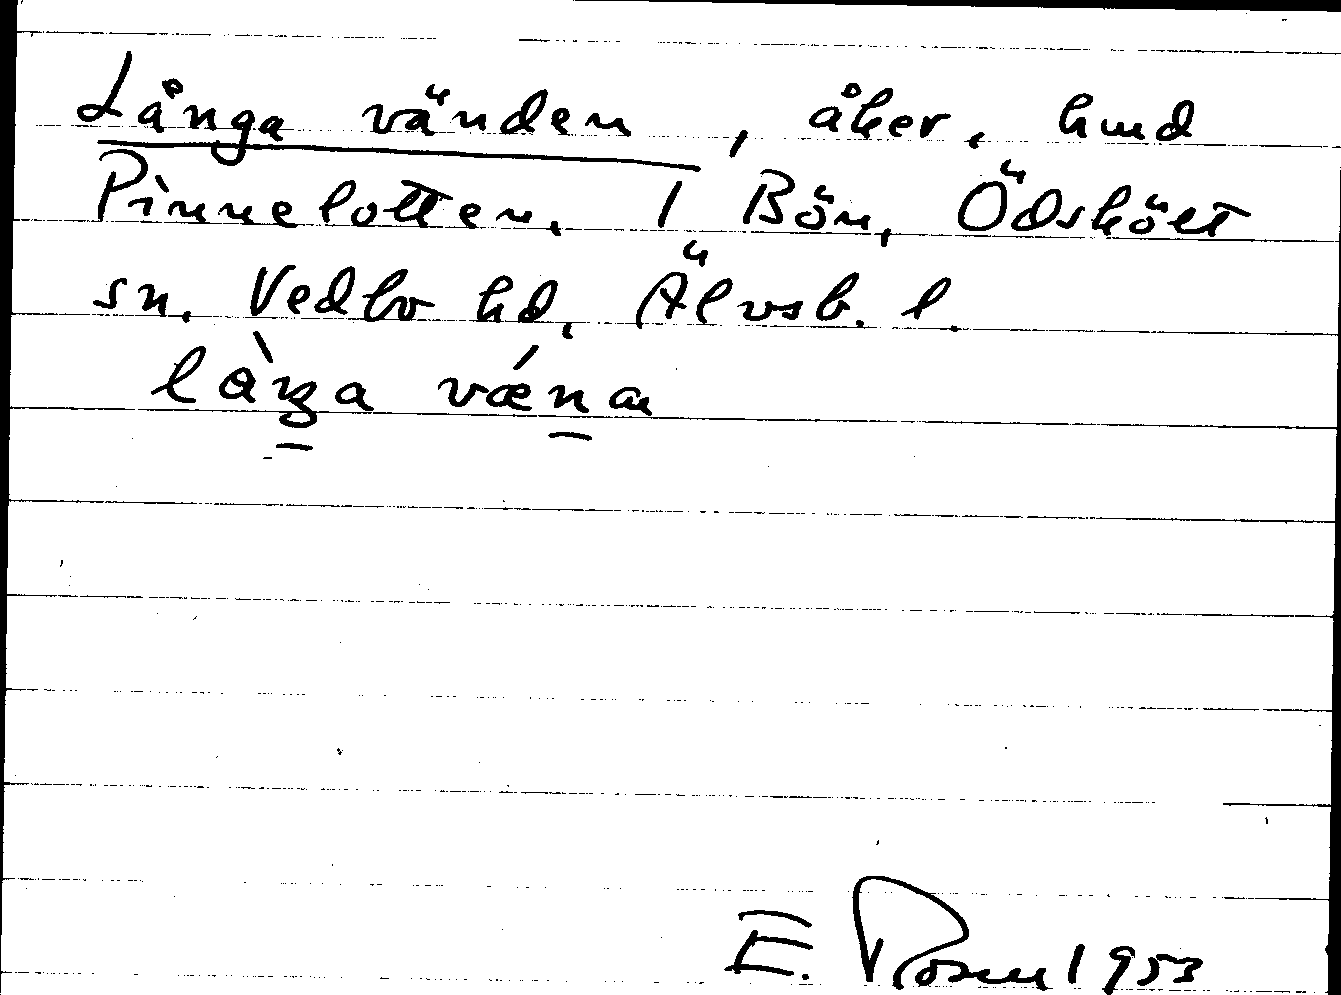 Långa vänden, åker, hmd
Pinnelotten. 1 Bön, Ödskölt
sn. Vedbo hd, Älvsb. l.
làŋa vǽnan
E. Rosen 1953